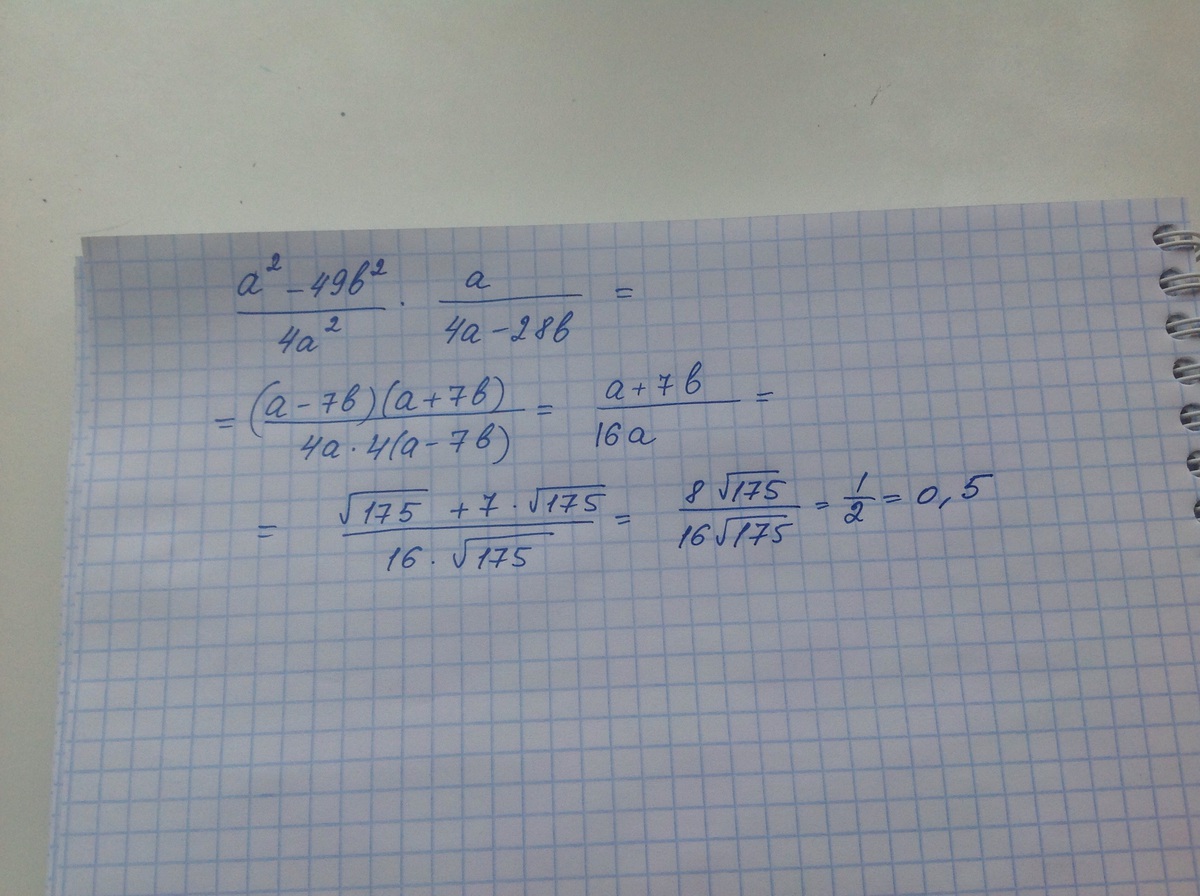 a² - 49b² / 4a² · a / 4a - 28b =
= (a - 7b)(a + 7b) / 4a · 4(a - 7b) = a + 7b / 16a =
= √175 + 7 · √175 / 16 · √175 = 8√175 / 16√175 = 1/2 = 0,5